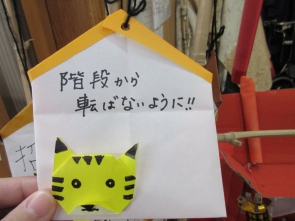 階段から
転ばないように!!